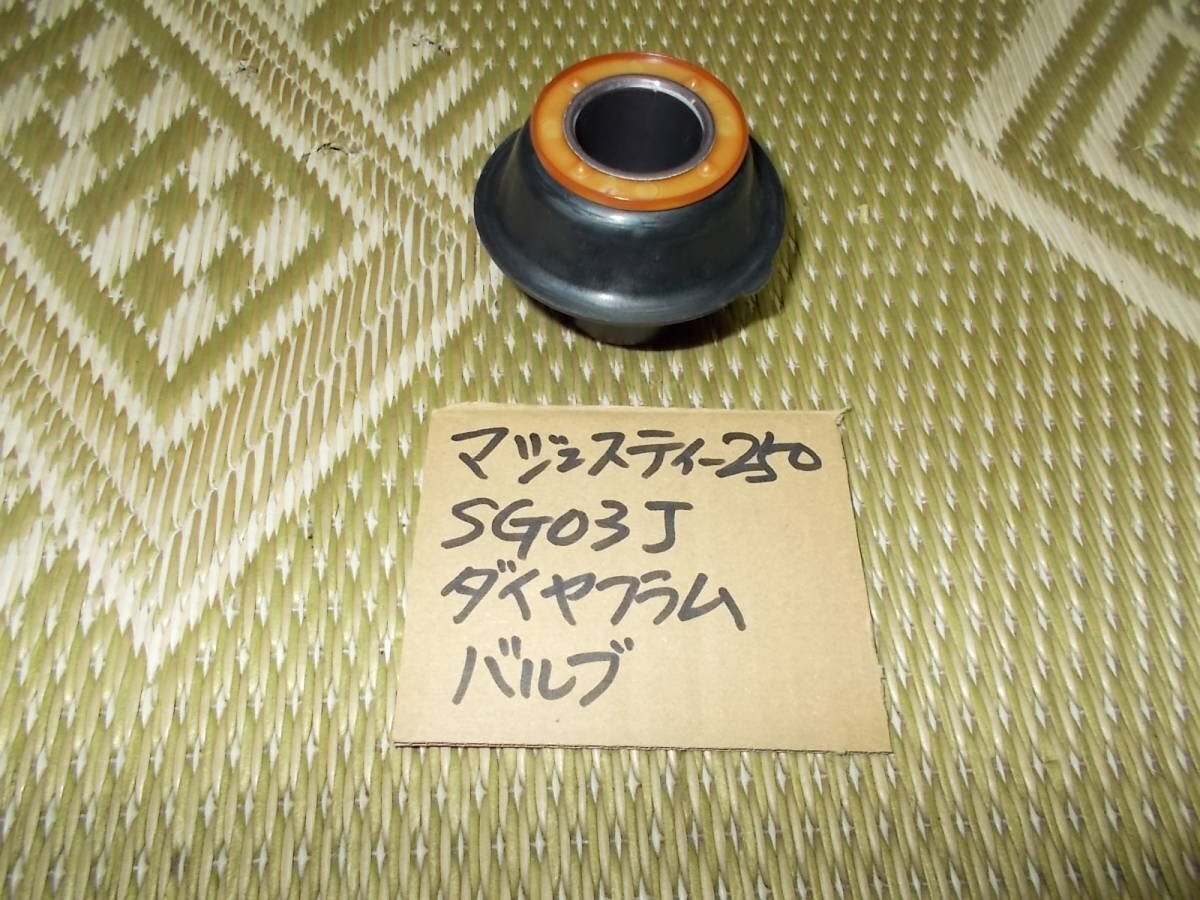 マジェスティー250
SG03J
ダイヤフラム
バルブ